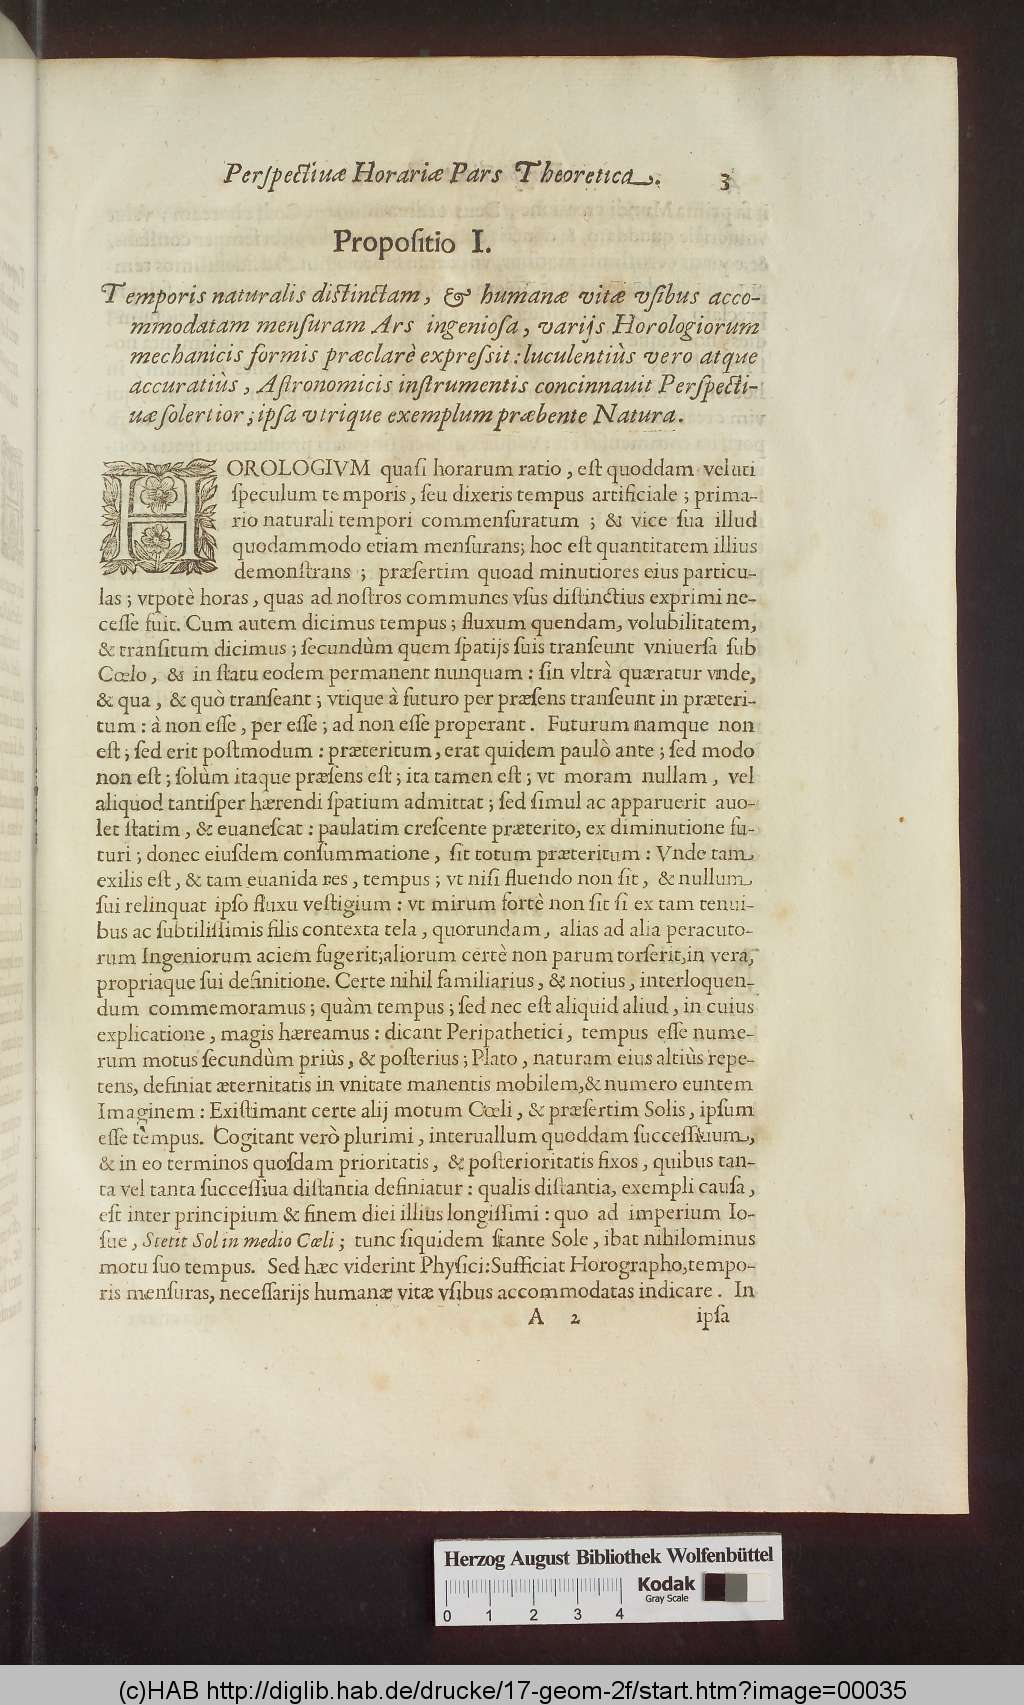 Perſpectiuæ Horariæ Pars Theoretica. 3
Propoſitio I.
Temporis naturalis diſtinctam, & humanæ vitæ vſibus acco-
mmodatam menſuram Ars ingenioſa, varijs Horologiorum
mechanicis formis præclarè expreſsit: luculentiùs vero atque
accuratiùs, Aſtronomicis inſtrumentis concinnauit Perſpecti-
uæ ſolertior; ipſa vtrique exemplum præbente Natura.
HOROLOGIVM quaſi horarum ratio, eſt quoddam veluti
ſpeculum temporis, ſeu dixeris tempus artificiale; prima-
rio naturali tempori commenſuratum; & vice ſua illud
quodammodo etiam menſurans; hoc eſt quantitatem illius
demonſtrans; præſertim quoad minutiores eius particu-
las; vtpotè horas, quas ad noſtros communes vſus diſtinctius exprimi ne-
ceſſe fuit. Cum autem dicimus tempus; fluxum quendam, volubilitatem,
& tranſitum dicimus; ſecundùm quem ſpatijs ſuis tranſeunt vniuerſa ſub
Cœlo, & in ſtatu eodem permanent nunquam: ſin vltrà quæratur vnde,
& qua, & quò tranſeant; vtique à futuro per præſens tranſeunt in præteri-
tum: à non eſſe, per eſſe; ad non eſſe properant. Futurum namque non
eſt; ſed erit poſtmodum: præteritum, erat quidem paulò ante; ſed modo
non eſt; ſolùm itaque præſens eſt; ita tamen eſt; vt moram nullam, vel
aliquod tantiſper hærendi ſpatium admittat; ſed ſimul ac apparuerit auo-
let ſtatim, & euaneſcat: paulatim creſcente præterito, ex diminutione fu-
turi; donec eiuſdem conſummatione, ſit totum præteritum: Vnde tam
exilis eſt, & tam euanida res, tempus; vt niſi fluendo non ſit, & nullum
ſui relinquat ipſo fluxu veſtigium: vt mirum fortè non ſit ſi ex tam tenui-
bus ac ſubtiliſſimis filis contexta tela, quorundam, alias ad alia peracuto-
rum Ingeniorum aciem fugerit; aliorum certè non parum torſerit, in vera,
propriaque ſui definitione. Certe nihil familiarius, & notius, interloquen-
dum commemoramus; quàm tempus; ſed nec eſt aliquid aliud, in cuius
explicatione, magis hæreamus: dicant Peripathetici, tempus eſſe nume-
rum motus ſecundùm priùs, & poſterius; Plato, naturam eius altiùs repe-
tens, definiat æternitatis in vnitate manentis mobilem, & numero euntem
Imaginem: Exiſtimant certe alij motum Cœli, & præſertim Solis, ipſum
eſſe tèmpus. Cogitant verò plurimi, interuallum quoddam ſucceſſiuum,
& in eo terminos quoſdam prioritatis, & poſterioritatis fixos, quibus tan-
ta vel tanta ſucceſſiua diſtantia definiatur: qualis diſtantia, exempli cauſa,
eſt inter principium & finem diei illius longiſſimi: quo ad imperium Io-
ſue, Stetit Sol in medio Cœli; tunc ſiquidem ſtante Sole, ibat nihilominus
motu ſuo tempus. Sed hæc viderint Phyſici: Sufficiat Horographo, tempo-
ris menſuras, neceſſarijs humanæ vitæ vſibus accommodatas indicare. In
A 2 ipſa
Herzog August Bibliothek Wolfenbüttel
Kodak
Gray Scale
0 1 2 3 4
(c)HAB http://diglib.hab.de/drucke/17-geom-2f/start.htm?image=00035